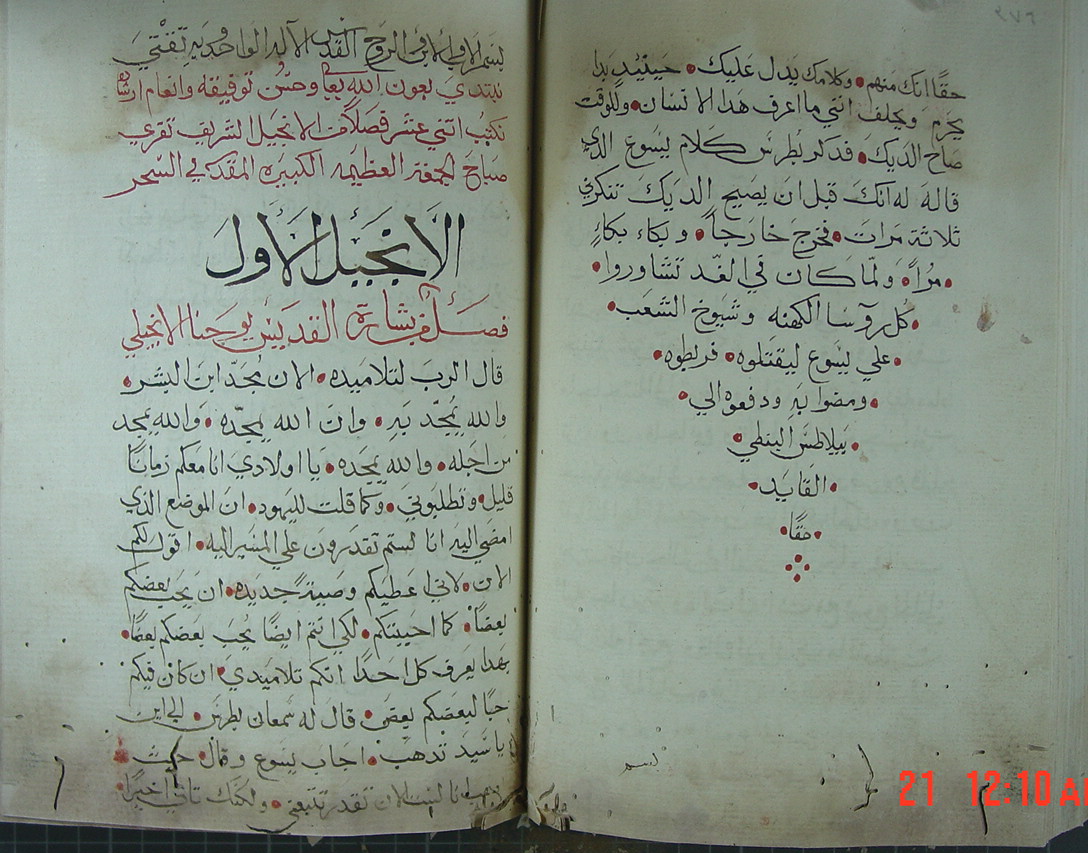 ٢٧٦
حقًا انك منهم • وكلامك يدل عليك • حينيد بدا
يحرم ويحلف انني ما اعرف هدا الانسان • وللوقت
صاح الديك • فدكر بطرس كلام يسوع الدي
قاله له انك قبل ان يصيح الديك تنكرني
ثلاثة مرات • فخرج خارجاً • وبكاء بكاءٍ
• مراً • ولما كان في الغد تشاوروا •
• كل روسا الكهنه وشيوخ الشعب •
• علي يسوع ليقتلوه • فربطوه •
• ومضوا به ودفعوه الي •
• بيلاطس البنطي •
• القايد •
• حقًا •
بسم
بسم الاب والابن والروح القدس الاله الواحد به تقتي
نبتدي بعون الله تعا وحسن توفيقه وانعام ارشاده
نكتب اتني عشر فصلا من الانجيل الشريف تقري
صباح الجمعة العظيمه الكبيره المقدسه في السحر
الانجيل الاول
فصل من بشارة القديس يوحنا الانجيلي
قال الرب لتلاميده • الان مجد ابن البشر •
والله يمجد به • وان الله يمجده • والله يمجد
من اجله • والله يمجده • يا اولادي انا معكم زمانا
قليل • وتطلبوني • وكما قلت لليهود • ان الموضع الدي
امضي اليه انا لستم تقدرون علي المسير اليه • اقول لكم
الان • لاني اعطيكم وصية جديده • ان يحب بعضكم
بعضاً • كما احببتكم • لكي انتم ايضًا يحب بعضكم بعضًا •
بهدا يعرف كل احدًا انكم تلاميدي • ان كان فيكم
حبًا لبعضكم بعض • قال له سمعان بطرس • الي اين
يا سيد تدهب • اجاب يسوع وقال • حيث
ادهب انا لست الان تقدر تتبعني • ولكنك تاتي اخيرًا •
21 12:10 AM